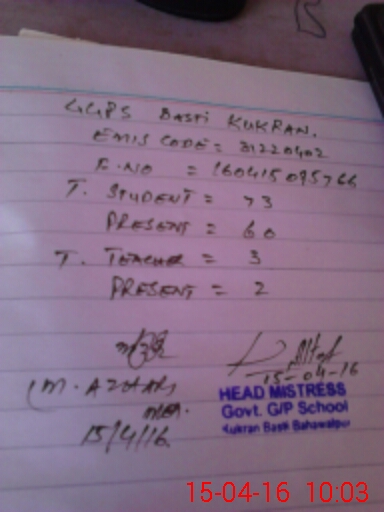 GGPS Basti KUKRAN.
EMIS CODE = 31220402
E.NO = 160415095766
T. STUDENT = 73
PRESENT = 60
T. TEACHER = 3
PRESENT = 2
15-04-16
(M. AZHAR)
HEAD MISTRESS
Govt. G/P School
Kukran Basti Bahawalpur
15/4/16.
15-04-16 10:03